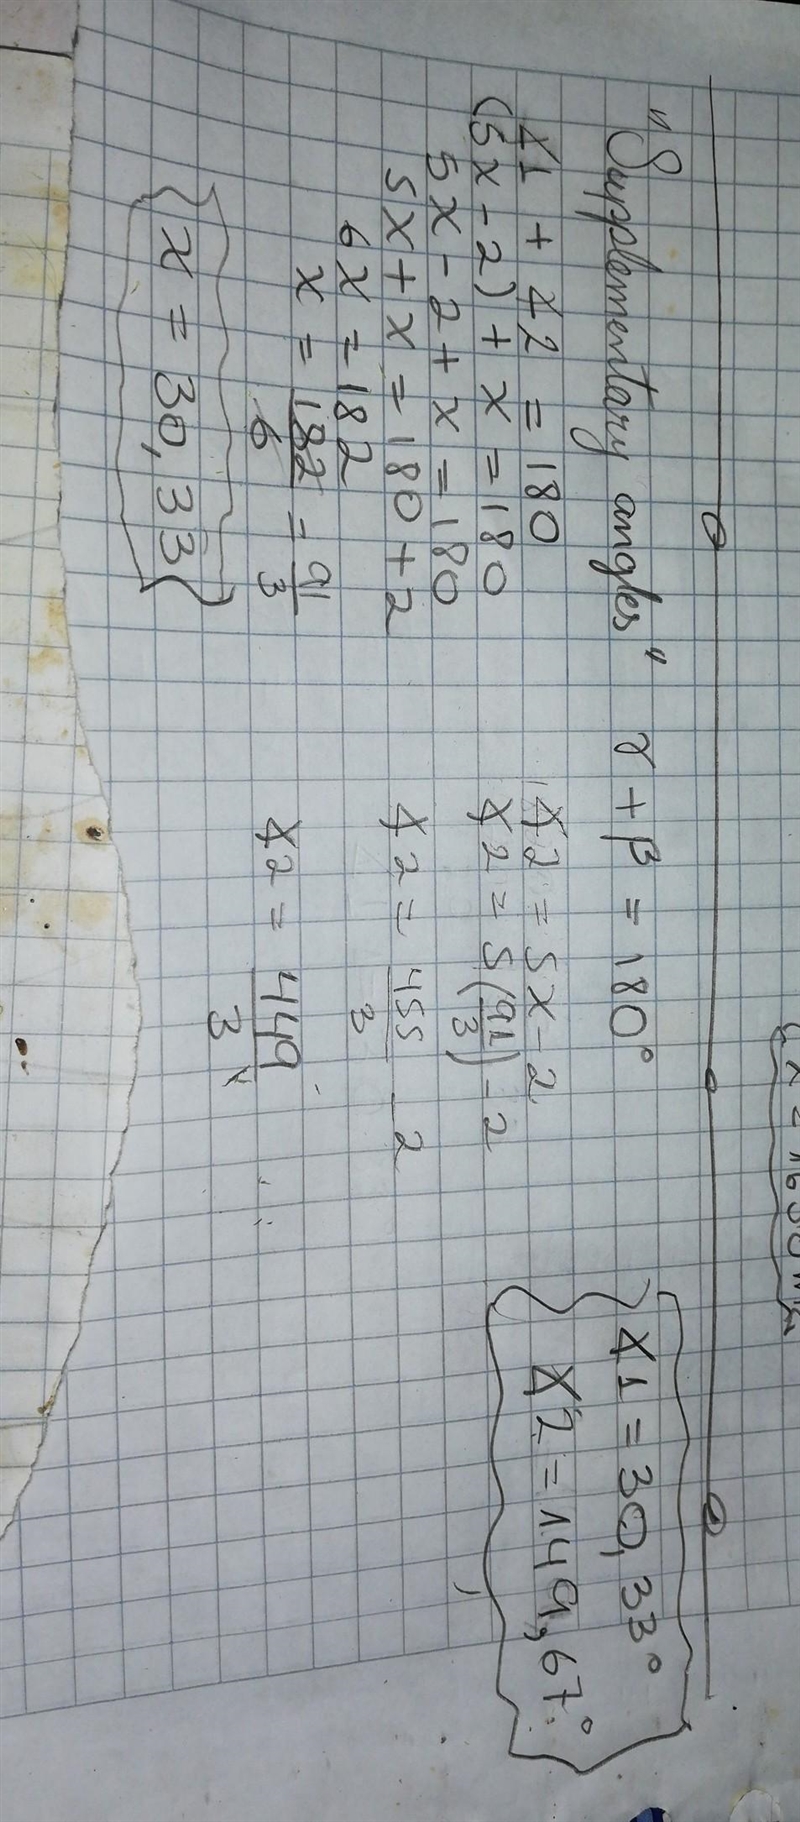 x = 1650 m
"Supplementary angles" γ + β = 180°
∡1 + ∡2 = 180
(5x - 2) + x = 180
5x - 2 + x = 180
5x + x = 180 + 2
6x = 182
x = 182/6 = 91/3
x = 30,33
∡2 = 5x - 2
∡2 = 5(91/3) - 2
∡2 = 455/3 - 2
∡2 = 449/3
∡1 = 30,33°
∡2 = 149,67°